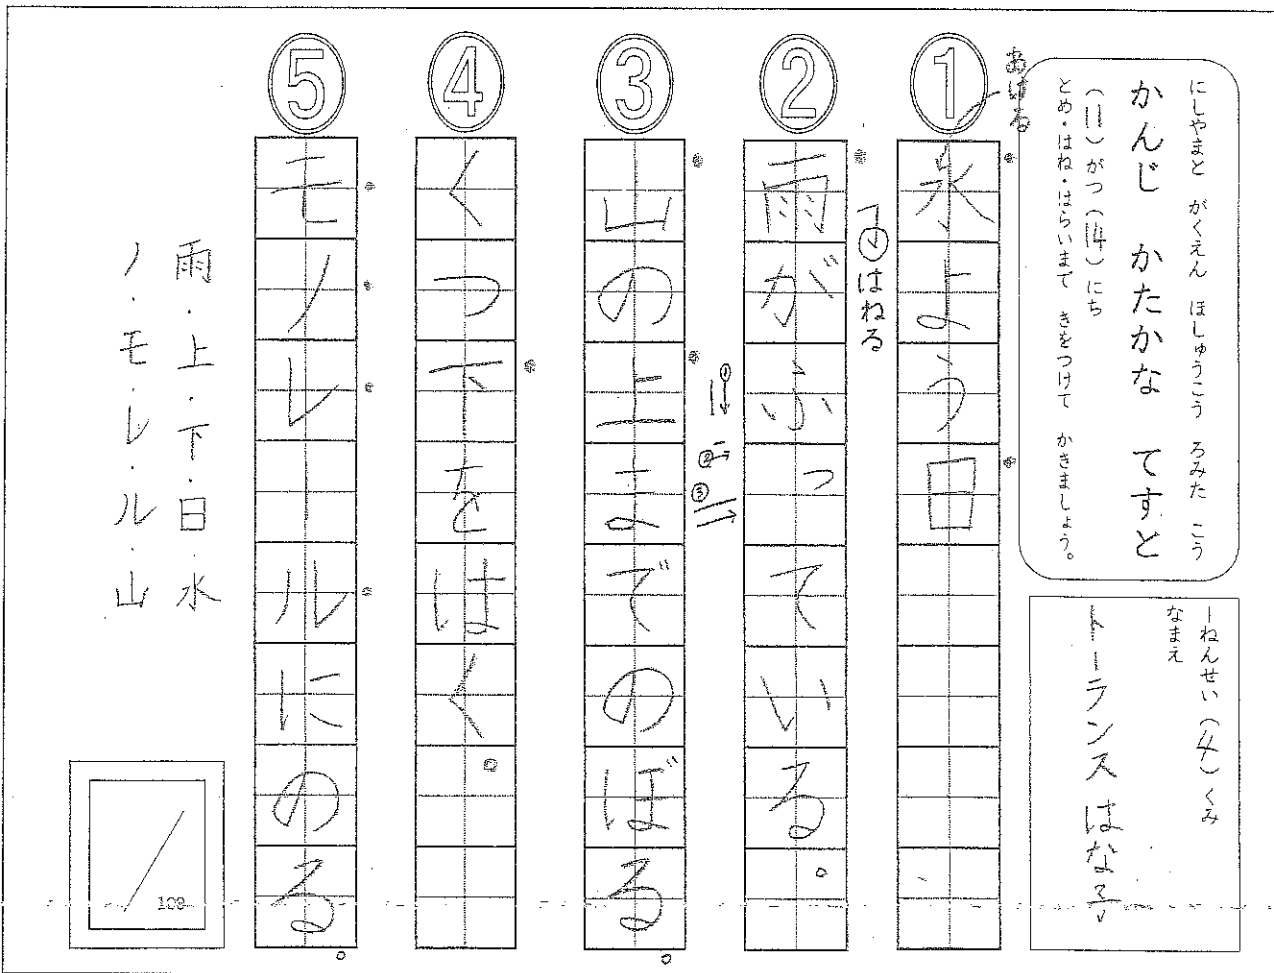 にしやまと がくえん ほしゅうこう ろみた こう
かんじ かたかな てすと
(11)がつ(14)にち
とめ・はね・はらいまで きをつけて かきましょう。
1ねんせい(4)くみ
なまえ
トーランス はな子
あける
① 水よう日
② 雨がふっている。
はねる
③ 山の上までのぼる。
①
②
③
④ くつ下をはく。
⑤ モノレールにのる。
雨・上・下・日・水
ノ・モ・レ・ル・山
100